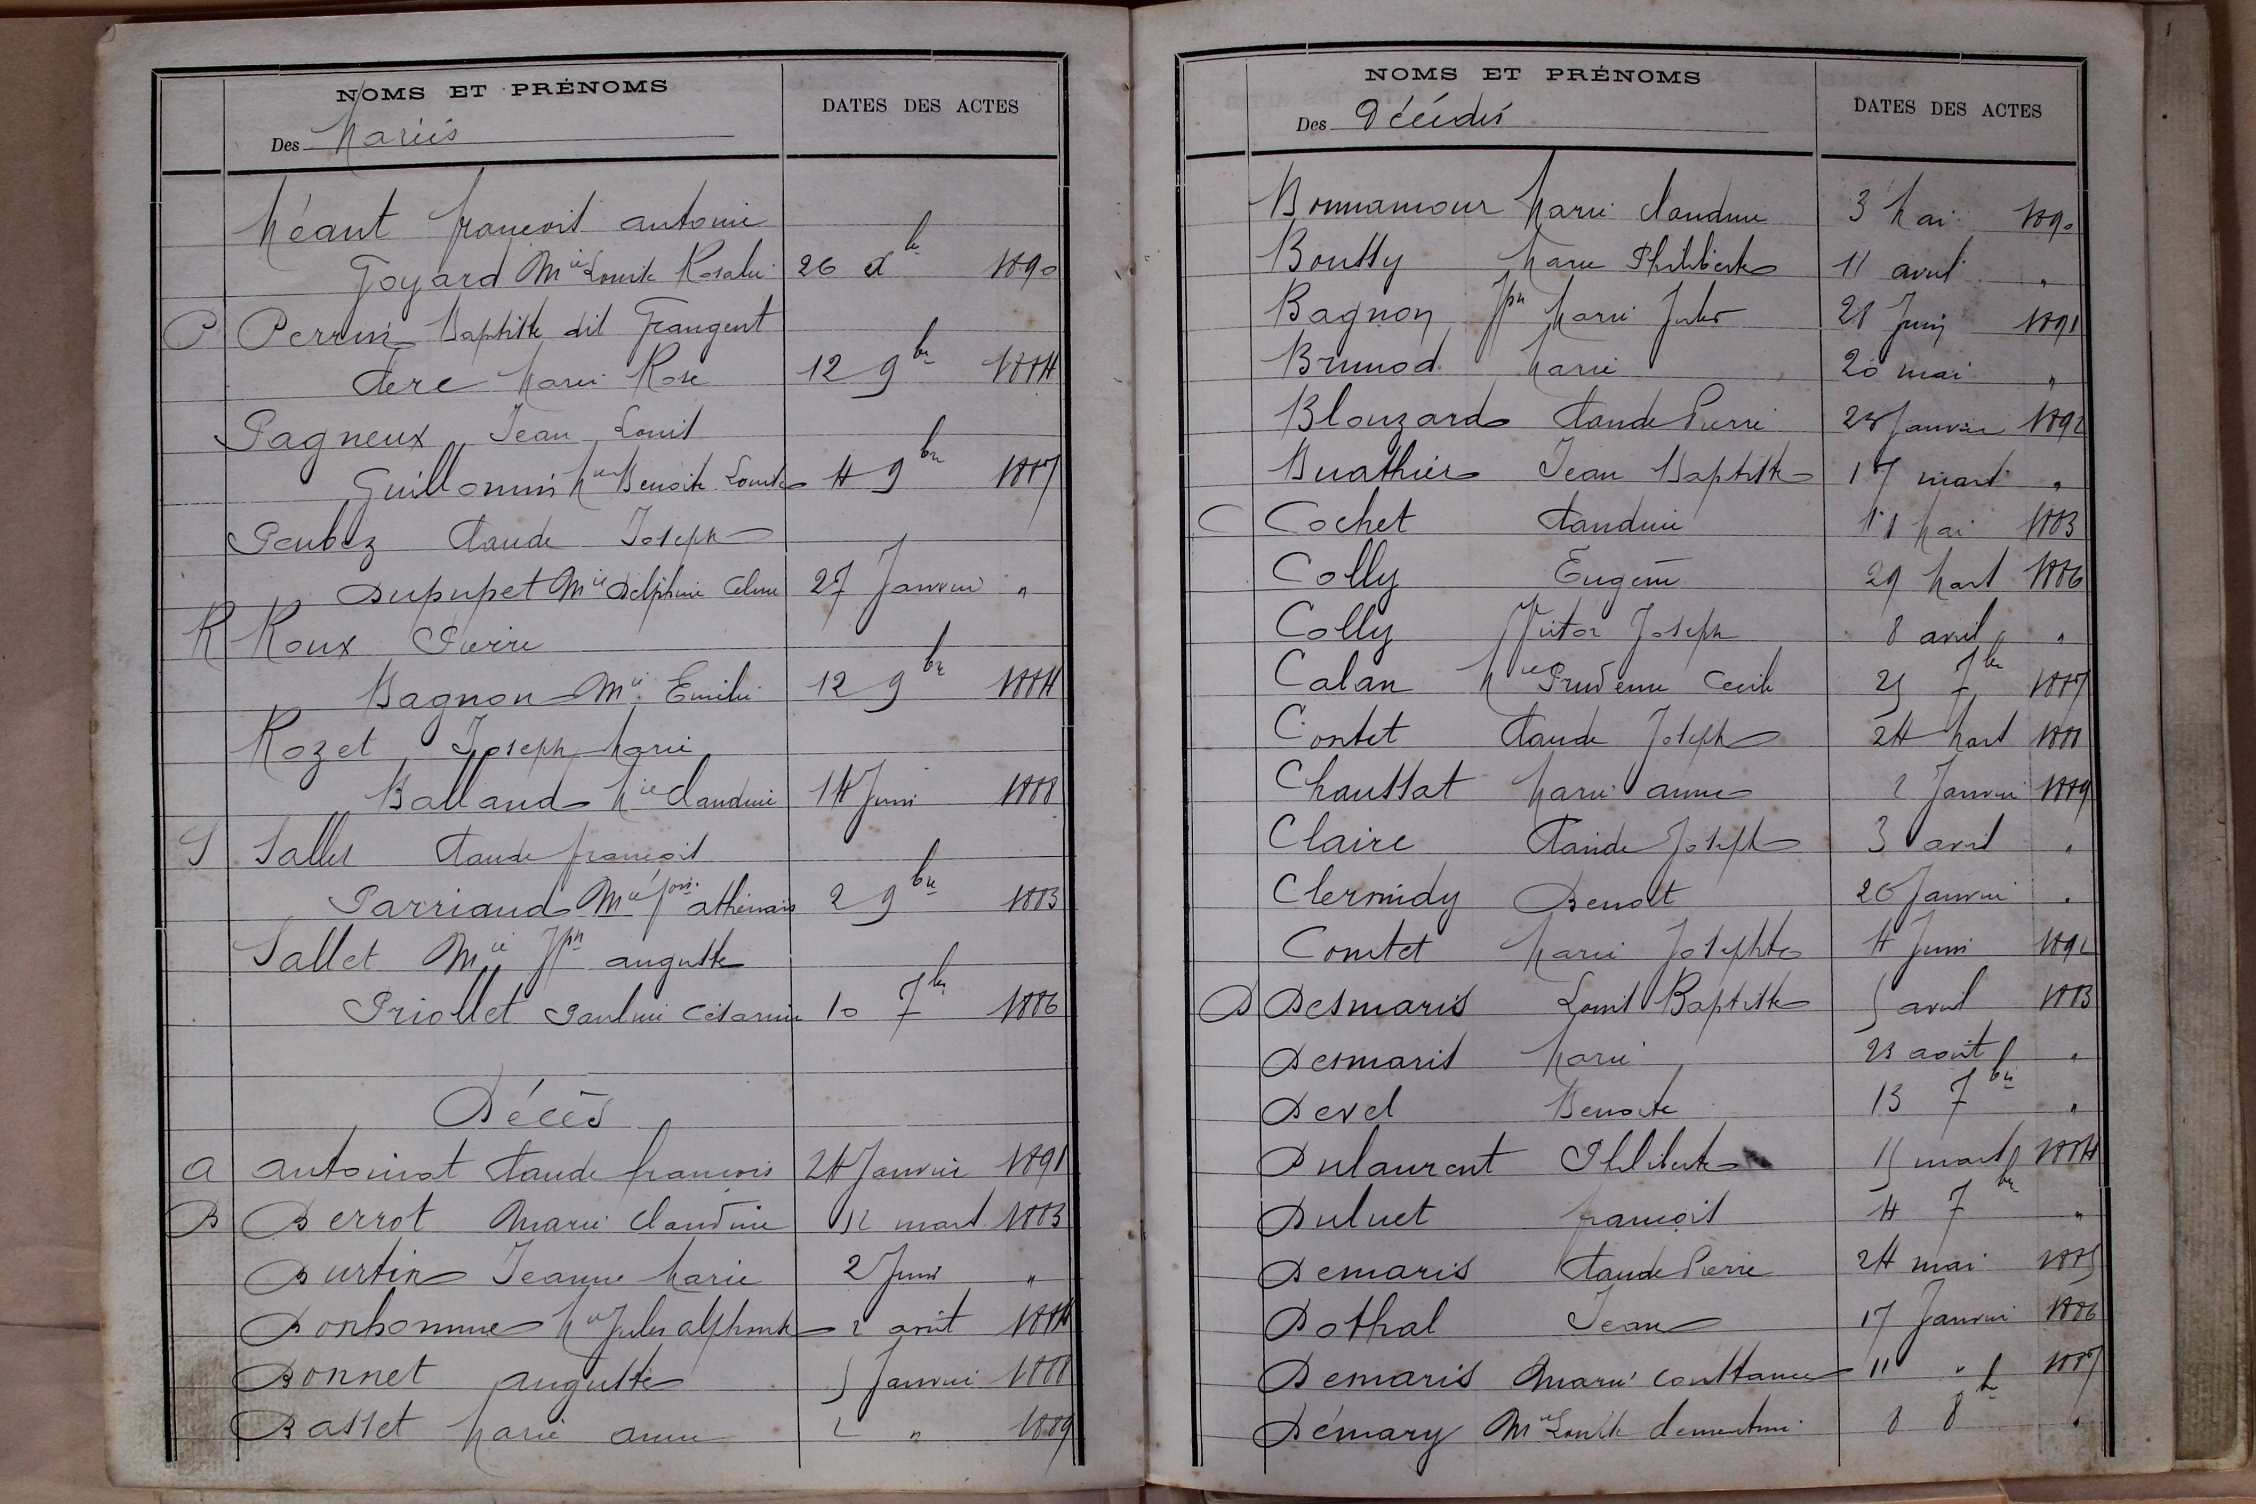 NOMS ET PRÉNOMS
Des Mariés
DATES DES ACTES
Méant françois antoine
Goyard Mie Louise Rosalie 26 Xbre 1890
P Perrin Baptiste dit Grangent
Clerc Marie Rose 12 9bre 1884
Pagneux Jean Louis
Guillomin Mie Benoite Louise 4 9bre 1887
Peubez Claude Joseph
Dupupet Mie Delphine Celine 27 Janvier "
R Roux Pierre
Bagnon Mie Emilie 12 9bre 1884
Rozet Joseph Marie
Balland Mie Claudine 14 Juin 1888
S Salles Claude françois
Parriaud Mie foise athénais 2 9bre 1883
Sallet Mie Jph auguste
Priollet Pauline Césarine 10 7bre 1886
Décès
A Antoinat Claude françois 24 Janvier 1891
B Berrot Marie Claudine 12 mars 1883
Burtin Jeanne Marie 2 Juin "
Bonhomme Mie Jules alphonse 2 août 1884
Bonnet auguste 5 Janvier 1888
Basset Marie anne 2 " 1889
NOMS ET PRÉNOMS
Des Décédés
DATES DES ACTES
Bonnamour Marie Claudine 3 Mai 1890
Boussy Marie Philiberte 11 avril "
Bagnon Jph Marie Jules 28 Juin 1891
Brunod Marie 20 mai "
Blouzard Claude Pierre 23 Janvier 1892
Buathier Jean Baptiste 17 mars "
C Cochet Claudine 11 Mai 1883
Colly Eugène 29 Mars 1886
Colly Victor Joseph 8 avril "
Calan Mie Prudence Cecile 25 7bre 1887
Contet Claude Joseph 24 Mars 1888
Chaussat Marie anne 2 Janvier 1889
Claire Claude Joseph 3 avril "
Clermidy Benoit 26 Janvier "
Comtet Marie Josephte 4 Juin 1892
D Desmaris Louis Baptiste 5 avril 1883
Desmaris Marie 23 août "
Devel Benoite 13 7bre "
Dulaurent Philiberte 15 mars 1884
Duluet françois 4 7bre "
Demaris Claude Pierre 24 mai 1885
Dothal Jean 17 Janvier 1886
Demaris Marie Constance 11 " 1887
Démary Mie Louise Clementine 8 8bre "